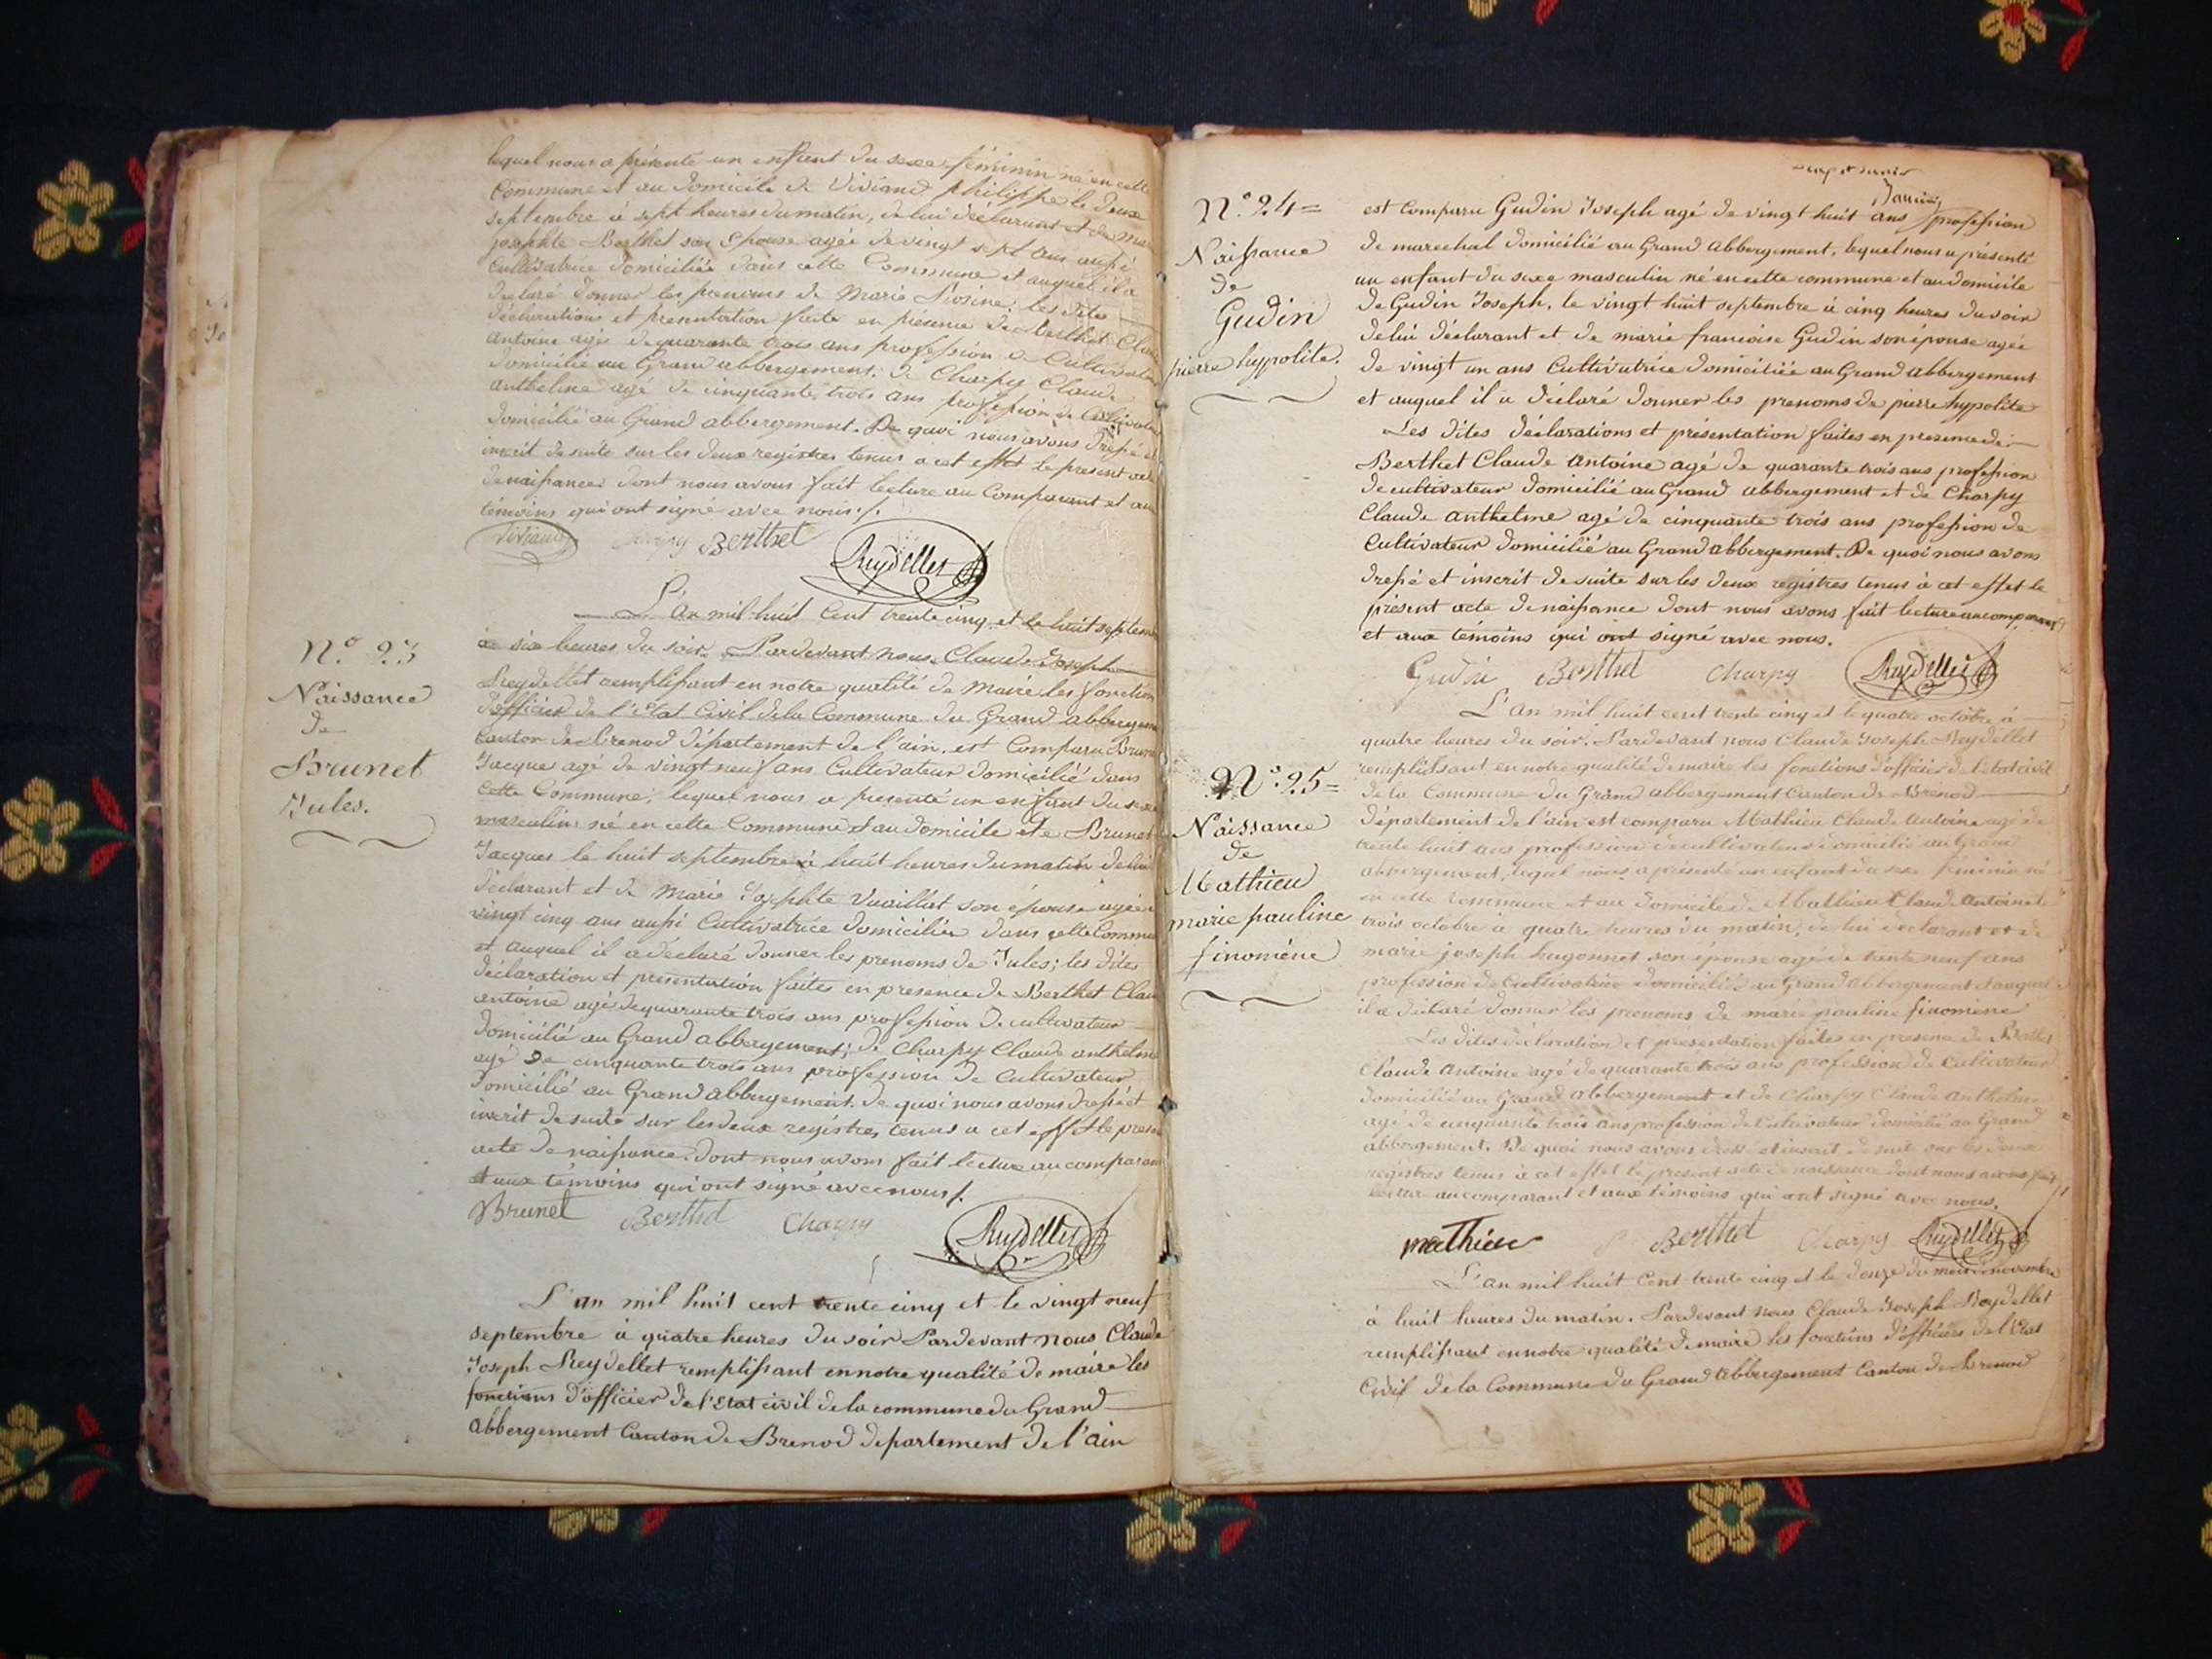 lequel nous a présenté un enfant du sexe féminin né en cette
Commune et au domicile de Viviand philippe le deux
septembre à sept heures du matin, de lui déclarant et de
josephte Berthet son Epouse agée de vingt sept ans aussi
Cultivatrice domiciliée dans cette Commune et auquel il a
déclaré donner les prenoms de Marie Rosine; les dites
déclarations et presentation faite en présence de Berthet
antoine agé de quarante trois ans profession de
domicilié au Grand abbergement; de Charpy Claude
anthelme agé de cinquante trois ans profession de
domicilié au Grand abbergement. De quoi nous avons dressé
inscrit de suite sur les deux registres tenus a cet effet le present
de naissance dont nous avons fait lecture au Comparant et
témoins qui ont signé avec nous./.
Viviand Charpy Berthet Reydellet
N.º 23
Naissance
de
Brunet
Jules.
L'an mil huit Cent trente cinq et le huit
à six heures du soir. Pardevant nous Claude Joseph
Reydellet remplissant en notre qualité de Maire les
d'officier de l'état Civil de la Commune du Grand
Canton de Brenod département de l'ain. est Comparu
Jacque agé de vingt neuf ans Cultivateur domicilié dans
cette Commune, lequel nous a presenté un enfant du sexe
masculin né en cette Commune et au domicile de Brunet
Jacques le huit septembre à huit heures du matin de lui
déclarant et de Marie Josephte Vuaillat son épouse agée
vingt cinq ans aussi Cultivatrice domiciliée dans cette
et auquel il a déclaré donner les prenoms de Jules; les dites
déclaration et presentation faites en presence de Berthet
antoine agé de quarante trois ans profession de cultivateur
domicilié au Grand abbergement; de Charpy Claude anthelme
agé de cinquante trois ans profession de Cultivateur
domicilié au Grand abbergement. de quoi nous avons dressé et
inscrit de suite sur les deux registres tenus a cet effet le
acte de naissance. dont nous avons fait lecture au
et aux témoins qui ont signé avec nous/.
Brunet Berthet Charpy Reydellet
L'an mil huit cent trente cinq et le vingt neuf
septembre à quatre heures du soir Pardevant nous Claude
Joseph Reydellet remplissant en notre qualité de maire les
fonctions d'officier de l'Etat civil de la commune du Grand
abbergement Canton de Brenod departement de l'ain
N.º 24=
Naissance
de
Gudin
pierre hypolite.
est Comparu Gudin Joseph agé de vingt huit ans profession
de marechal domicilié au Grand abbergement, lequel nous a présenté
un enfant du sexe masculin né en cette commune et au domicile
de Gudin Joseph, le vingt huit septembre à cinq heures du soir
de lui déclarant et de marie francoise Gudin son épouse agée
de vingt un ans Cultivatrice domiciliée au Grand abbergement
et auquel il a déclaré donner les prenoms de pierre hypolite
Les dites déclarations et présentation faites en presence de
Berthet Claude antoine agé de quarante trois ans profession
de cultivateur domicilié au Grand abbergement et de Charpy
Claude anthelme agé de cinquante trois ans profession de
Cultivateur domicilié au Grand abbergement. De quoi nous avons
dressé et inscrit de suite sur les deux registres tenus à cet effet le
présent acte de naissance dont nous avons fait lecture au comparant
et aux témoins qui ont signé avec nous.
Gudin Berthet Charpy Reydellet
N.º 25=
Naissance
de
Mathieu
marie pauline
finomène
L'an mil huit cent trente cinq et le quatre octobre à
quatre heures du soir. Pardevant nous Claude Joseph Reydellet
remplissant en notre qualité de maire les fonctions d'officier de l'etat civil
de la Commune du Grand abbergement Canton de Brenod
département de l'ain est comparu Mathieu Claude antoine agé de
trente huit ans profession de cultivateur domicilié au Grand
abbergement, lequel nous a présenté un enfant du sexe féminin né
en cette commune et au domicile de Mathieu Claude antoine le
trois octobre à quatre heures du matin, de lui déclarant et de
marie joseph hugonnet son épouse agé de trente neuf ans
profession de Cultivatrice domiciliée au Grand abbergement et auquel
il a déclaré donner les prenoms de marie pauline finomène
Les dites déclaration et présentation faites en presence de Berthet
Claude antoine agé de quarante trois ans profession de Cultivateur
domicilié au Grand abbergement et de Charpy Claude anthelme
agé de cinquante trois ans profession de Cultivateur domicilié au Grand
abbergement. De quoi nous avons dressé et inscrit de suite sur les deux
registres tenus à cet effet le présent acte de naissance dont nous avons fait
lecture au comparant et aux témoins qui ont signé avec nous.
mathieu Berthet Charpy Reydellet
L'an mil huit Cent trente cinq et le douze du mois de novembre
à huit heures du matin. Pardevant nous Claude Joseph Reydellet
remplissant en notre qualité de maire les fonctions d'officier de l'état
Civil de la Commune du Grand abbergement Canton de Brenod